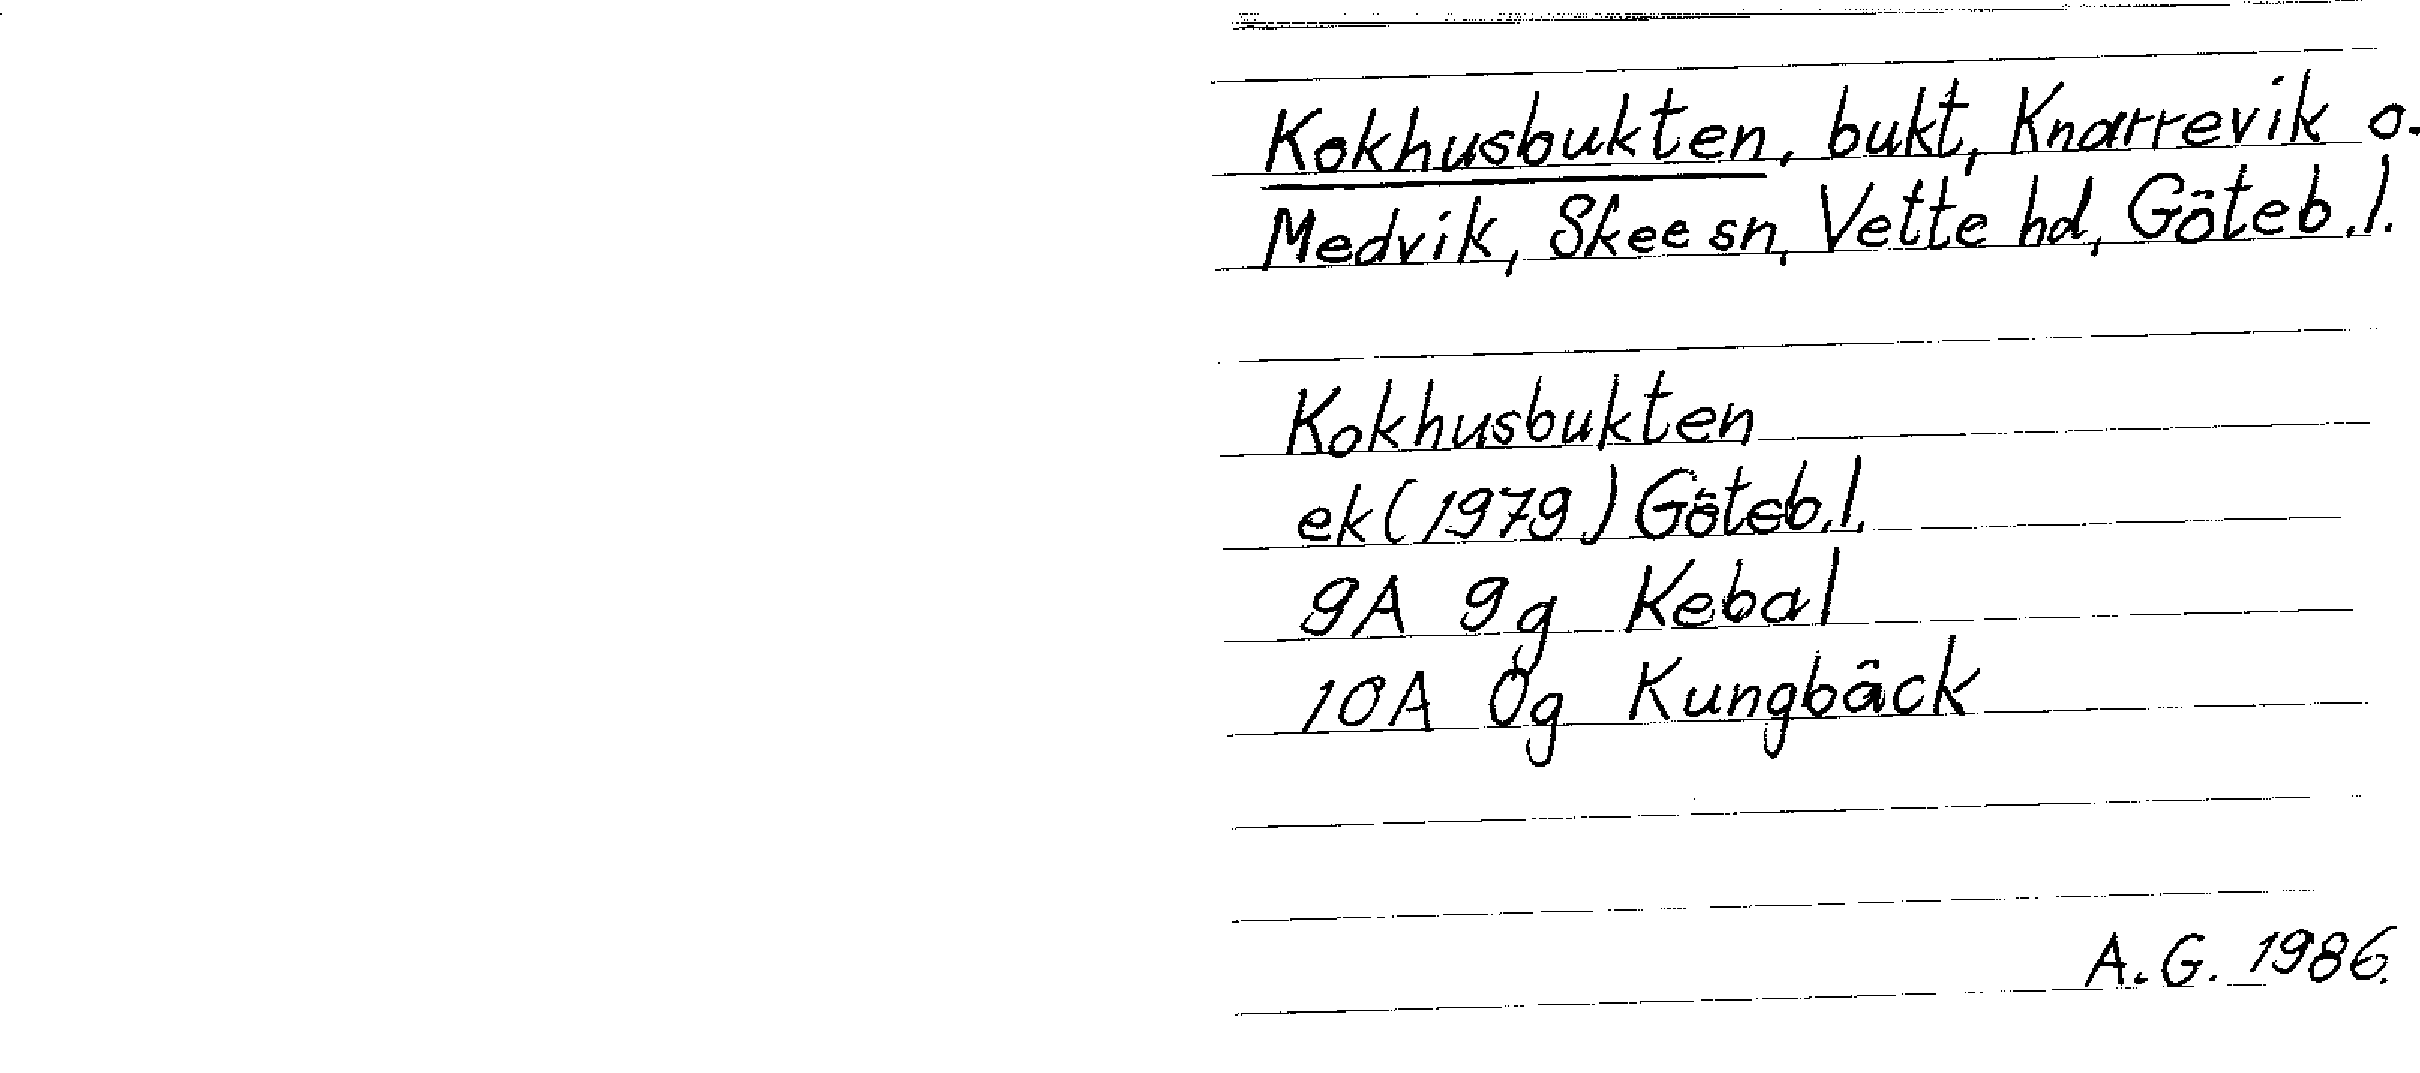 Kokhusbukten, bukt, Knarrevik o.
Medvik, Skee sn, Vette hd, Göteb.l.
Kokhusbukten
ek (1979) Göteb.l.
9A 9g Kebal
10A 0g Kungbäck
A.G. 1986.